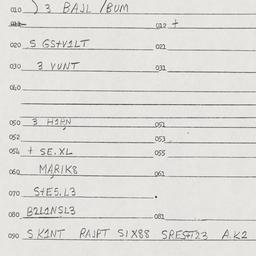 010 ) 3 BAJL / BUM
011 012 +
020 5 GS+V1LT 021
030 3 VUNT 031
040
050 3 H1PN 051
052 053
054 + SE.XL 055
060 MARIK8 061
070 S+E5.L3
080 B2L1NSL3 081
090 S K1NT PAJPT S1X88 SPES+T23 A.K2